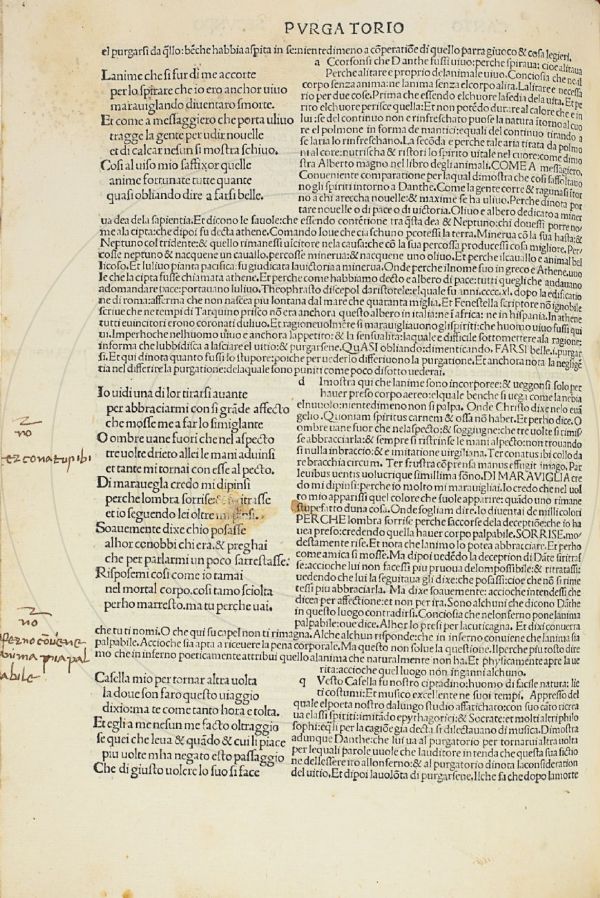 PVRGATORIO
el purgarsi da q̃llo: bẽche habbia aspita in se: nientedimeno a cõperatiõe di quello parra giuoco & cosa legieri.
Lanime che si fur di me accorte
per lo spirare che io ero anchor uiuo
marauigliando diuentaro smorte.
Et come a messaggiero che porta uliuo
tragge la gente per udir nouelle
et di calcar nesun si mostra schiuo.
Cosi al uiso mio saffixor quelle
anime fortunate tutte quante
quasi obliando dire a farsi belle.
a Ccorsonsi che Danthe fussi uiuo: perche spiraua: cioe alitaua
Perche alitare e proprio delanimale uiuo. Conciosia che ne il
corpo senza anima: ne lanima senza el corpo alita. Lalitare e necessa
rio per due cose. Prima che essendo el chuore la sedia dela uita. Et pe
rito el chuore perisce quella: Et non potẽdo durare al calore che e in
lui: se del continuo non e rinfreschato puose la natura itorno al cuo
re el polmone in forma de mantici: equali del continuo tirando a
se laria lo rinfreschano. La secõda e perche tale aria tirata da polmo
ni al core: nutrischa & ristori lo spirito uitale nel cuore: come dimo
stra Alberto magno nel libro degli animali. COME A messagiero.
Conueniente comparatione per laqual dimostra che cosi saffoltauo
no gli spiriti intorno a Danthe. Come la gente corte & ragunasi itor
no a chi areccha nouelle: & maxime se ha uliuo. Perche dinota por
tare nouelle o di pace o di uictoria. Oliuo e albero dedicato a miner
ua dea dela sapientia. Et dicono le fauole: che essendo contẽtione tra q̃sta dea & Neptuno: chi douessi porre no
me ala cipta: che dipoi fu decta athene. Comando Ioue che ciaschuno pcotessi la terra. Minerua cõ la sua hasta: &
Neptuno col tridente: & quello rimanessi uicitore nela causa: che cõ la sua percossa producessi cosa migliore. Per
cosse neptuno & nacquene un cauallo. percosse minerua: & nacquene uno oliuo. Et perche il cauallo e animal bel
licoso. Et luliuo pianta pacifica: fu giudicata la uictoria a minerua. Onde perche il nome suo in greco e Athene. uuo
le che la cipta fusse chiamata athene. Et perche come habbiamo decto e albero di pace: tutti quegli che andauano
adomandare pace: portauano luliuo. Theophrasto discepol daristotele: el quale fu anni.cccc.xl. dopo la edificatio
ne di roma: afferma che non nascea piu lontana dal mare che quaranta miglia. Et Fenestella scriptore nõ ignobile
scriue che ne tempi di Tarquino prisco nõ era anchora questo albero in italia: ne i africa: ne in hispania. In athene
tutti euincitori erono coronati duliuo. Et ragioneuolmẽte si marauigliauono gli spiriti: che huomo uiuo fussi qui
ui. Imperhoche nelhuomo uiuo e anchora lappetito: & la sensualita: laquale e difficile sottometterla ala ragione:
informa che lubbidisca a lasciare el uitio: & purgarsene. QuASI obliando: dimenticando. FARSI belle. i. purgar
si. Et qui dinota quanto fussi lo stupore: poiche per ueder lo differiuono la purgatione. Et anchora nota la negligẽ
tia nel differire la purgatione: dela quale sono puniti come poco disotto uederai.
Io uidi una di lor tirarsi auante
per abbracciarmi con si grãde affecto
che mosse me a far lo simiglante
O ombre uane fuori che nel aspecto
tre uolte drieto allei le mani aduinsi
et tante mi tornai con esse al pecto.
Di marauegla credo mi dipinsi
perche lombra sorrise: & si ritrasse
et io seguendo lei oltre mi pinsi.
Soauemente dixe chio posasse
alhor conobbi chi era. & preghai
che per parlarmi un poco sarrestasse.
Risposemi cosi come io tamai
nel mortal corpo. cosi tamo sciolta
perho marresto. ma tu perche uai.
d Imostra qui che lanime sono incorporee: & ueggonsi solo per
hauer preso corpo aereo: el quale benche si uega come la nebia
el nuuolo: nientedimeno non si palpa. Onde Christo dixe nelo euã
gelio. Quoniam spiritus carnem & ossa nõ habet. Et perho dice. O
ombre uane fuor che nelaspecto: & soggiunge: che tre uolte si misse
se abbracciarla: & sempre si ristrinse le mani al pecto: non trouando
si nulla inbraccio: & e imitatione uirgiliana. Ter conatus ibi collo da
re bracchia circum. Ter frustra cõprensa manus effugit imago. Par
leuibus uentis uolucrique simillima sõno. DI MARAVIGLIA cre
do mi dipinsi: perche io molto mi marauigliai. Io credo che nel uol
to mio apparissi quel colore che suole apparire: quãdo uno rimane
stupefatto duna cosa. Onde sogliam dire. Io diuentai de mille colori
PERCHE lombra sorrise perche saccorse dela deceptiõe: che io ha
uea preso: credendo quella hauer corpo palpabile. SORRISE. mo
destamente rise. Et nota che lanimo lo potea abbracciare. Et perho
come amica si mosse. Ma dipoi uedẽdo la deception di Dãte: si ritras
se: accioche lui non facessi piu pruoua delompossibile: & ritratasi:
uedendo che lui la seguitaua gli dixe: che posassi: cioe che nõ si rime
tessi piu abbracciarla. Ma dixe soauemente: accioche intendessi che
dicea per affectione: et non per ira. Sono alchuni che dicono Dãthe
in questo luogo contradirsi. Concioisia che nelonferno pone lanima
palpabile: oue dice. Alhor lo presi per la cuticagna. Et dixi conuerra
che tu ti nomi. O che qui su capel non ti rimagna. Alche alchun risponde: che in inferno conuiene che lanima sia
palpabile. Accioche sia apta a riceuere la pena corporale. Ma questo non solue la questione. Il perche piu rosto dire
mo che in inferno poeticamente attribui quello alanima che naturalmente non ha. Et phylicamente apre la ue
rita: accioche quel luogo non inganni alchuno.
Casella mio per tornar altra uolta
la doue son faro questo uiaggio
dixio: ma te come tanto hora e tolta.
Et egli a me nesun me facto oltraggio
se quei che leua & quãdo & cui li piace
piu uolte mha negato esto passaggio
Che di giusto uolere lo suo si face
q Vesto Casella fu nostro cipadino: huomo di facile natura: lie
ti costumi: Et musico excellente ne suoi tempi. Appresso del
quale el poeta nostro dalungo studio affatichato: con suo cãto ricrea
ua elassi spiriti: imitãdo epythagorici: & Socrate: et molti altri philo
sophi: equli per la cagiõe gia decta si dilectauano di musica. Dimostra
adunque Danthe: che lui ua al purgatorio per tornarui altra uolta
per lequali parole uuole che lauditore intenda che questa sua factio
ne delessere ito allonferno: & al purgatorio dinota la consideration
del uitio. Et dipoi la uolõta di purgarsene. Il che fa che dopo la morte
no
ter conatus ibi
no
Per no cõuiene
anima piu pal
pabile